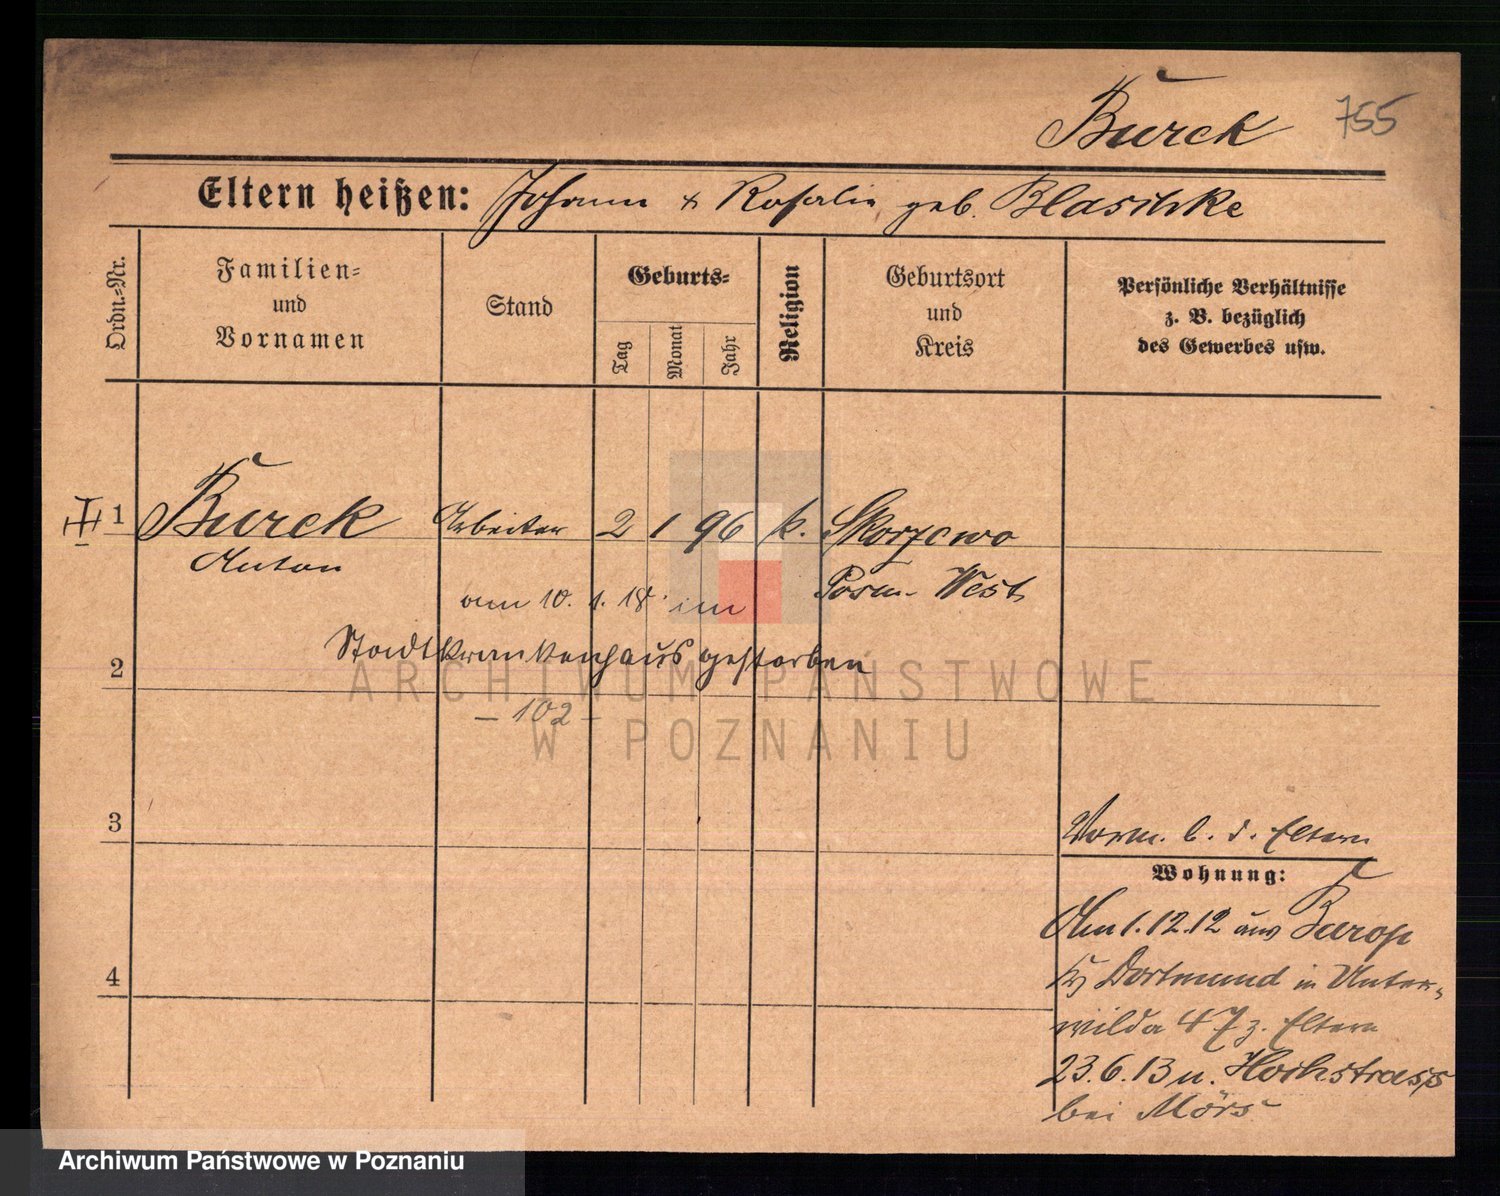 Burck 755
Eltern heißen: Johann & Rosalie geb. Blaschke
Ordn.-Nr.
Familien-
und
Vornamen
Stand
Geburts-
Tag
Monat
Jahr
Religion
Geburtsort
und
Kreis
Persönliche Verhältnisse
z. B. bezüglich
des Gewerbes usw.
1 Burck Arbeiter 2 1 96 k. Skorzewo
Anton
Posen-West
am 10. 1. 18 im
Stadtkrankenhaus gestorben
2
- 102 -
3
Vorm. b. d. Eltern
Wohnung:
Am 1.12.12 aus Barop
4
Kr Dortmund in Unter-
wilda 47 z. Eltern
23.6.13 n. Hochstrass
bei Mörs
ARCHIWUM PAŃSTWOWE
W POZNANIU
Archiwum Państwowe w Poznaniu